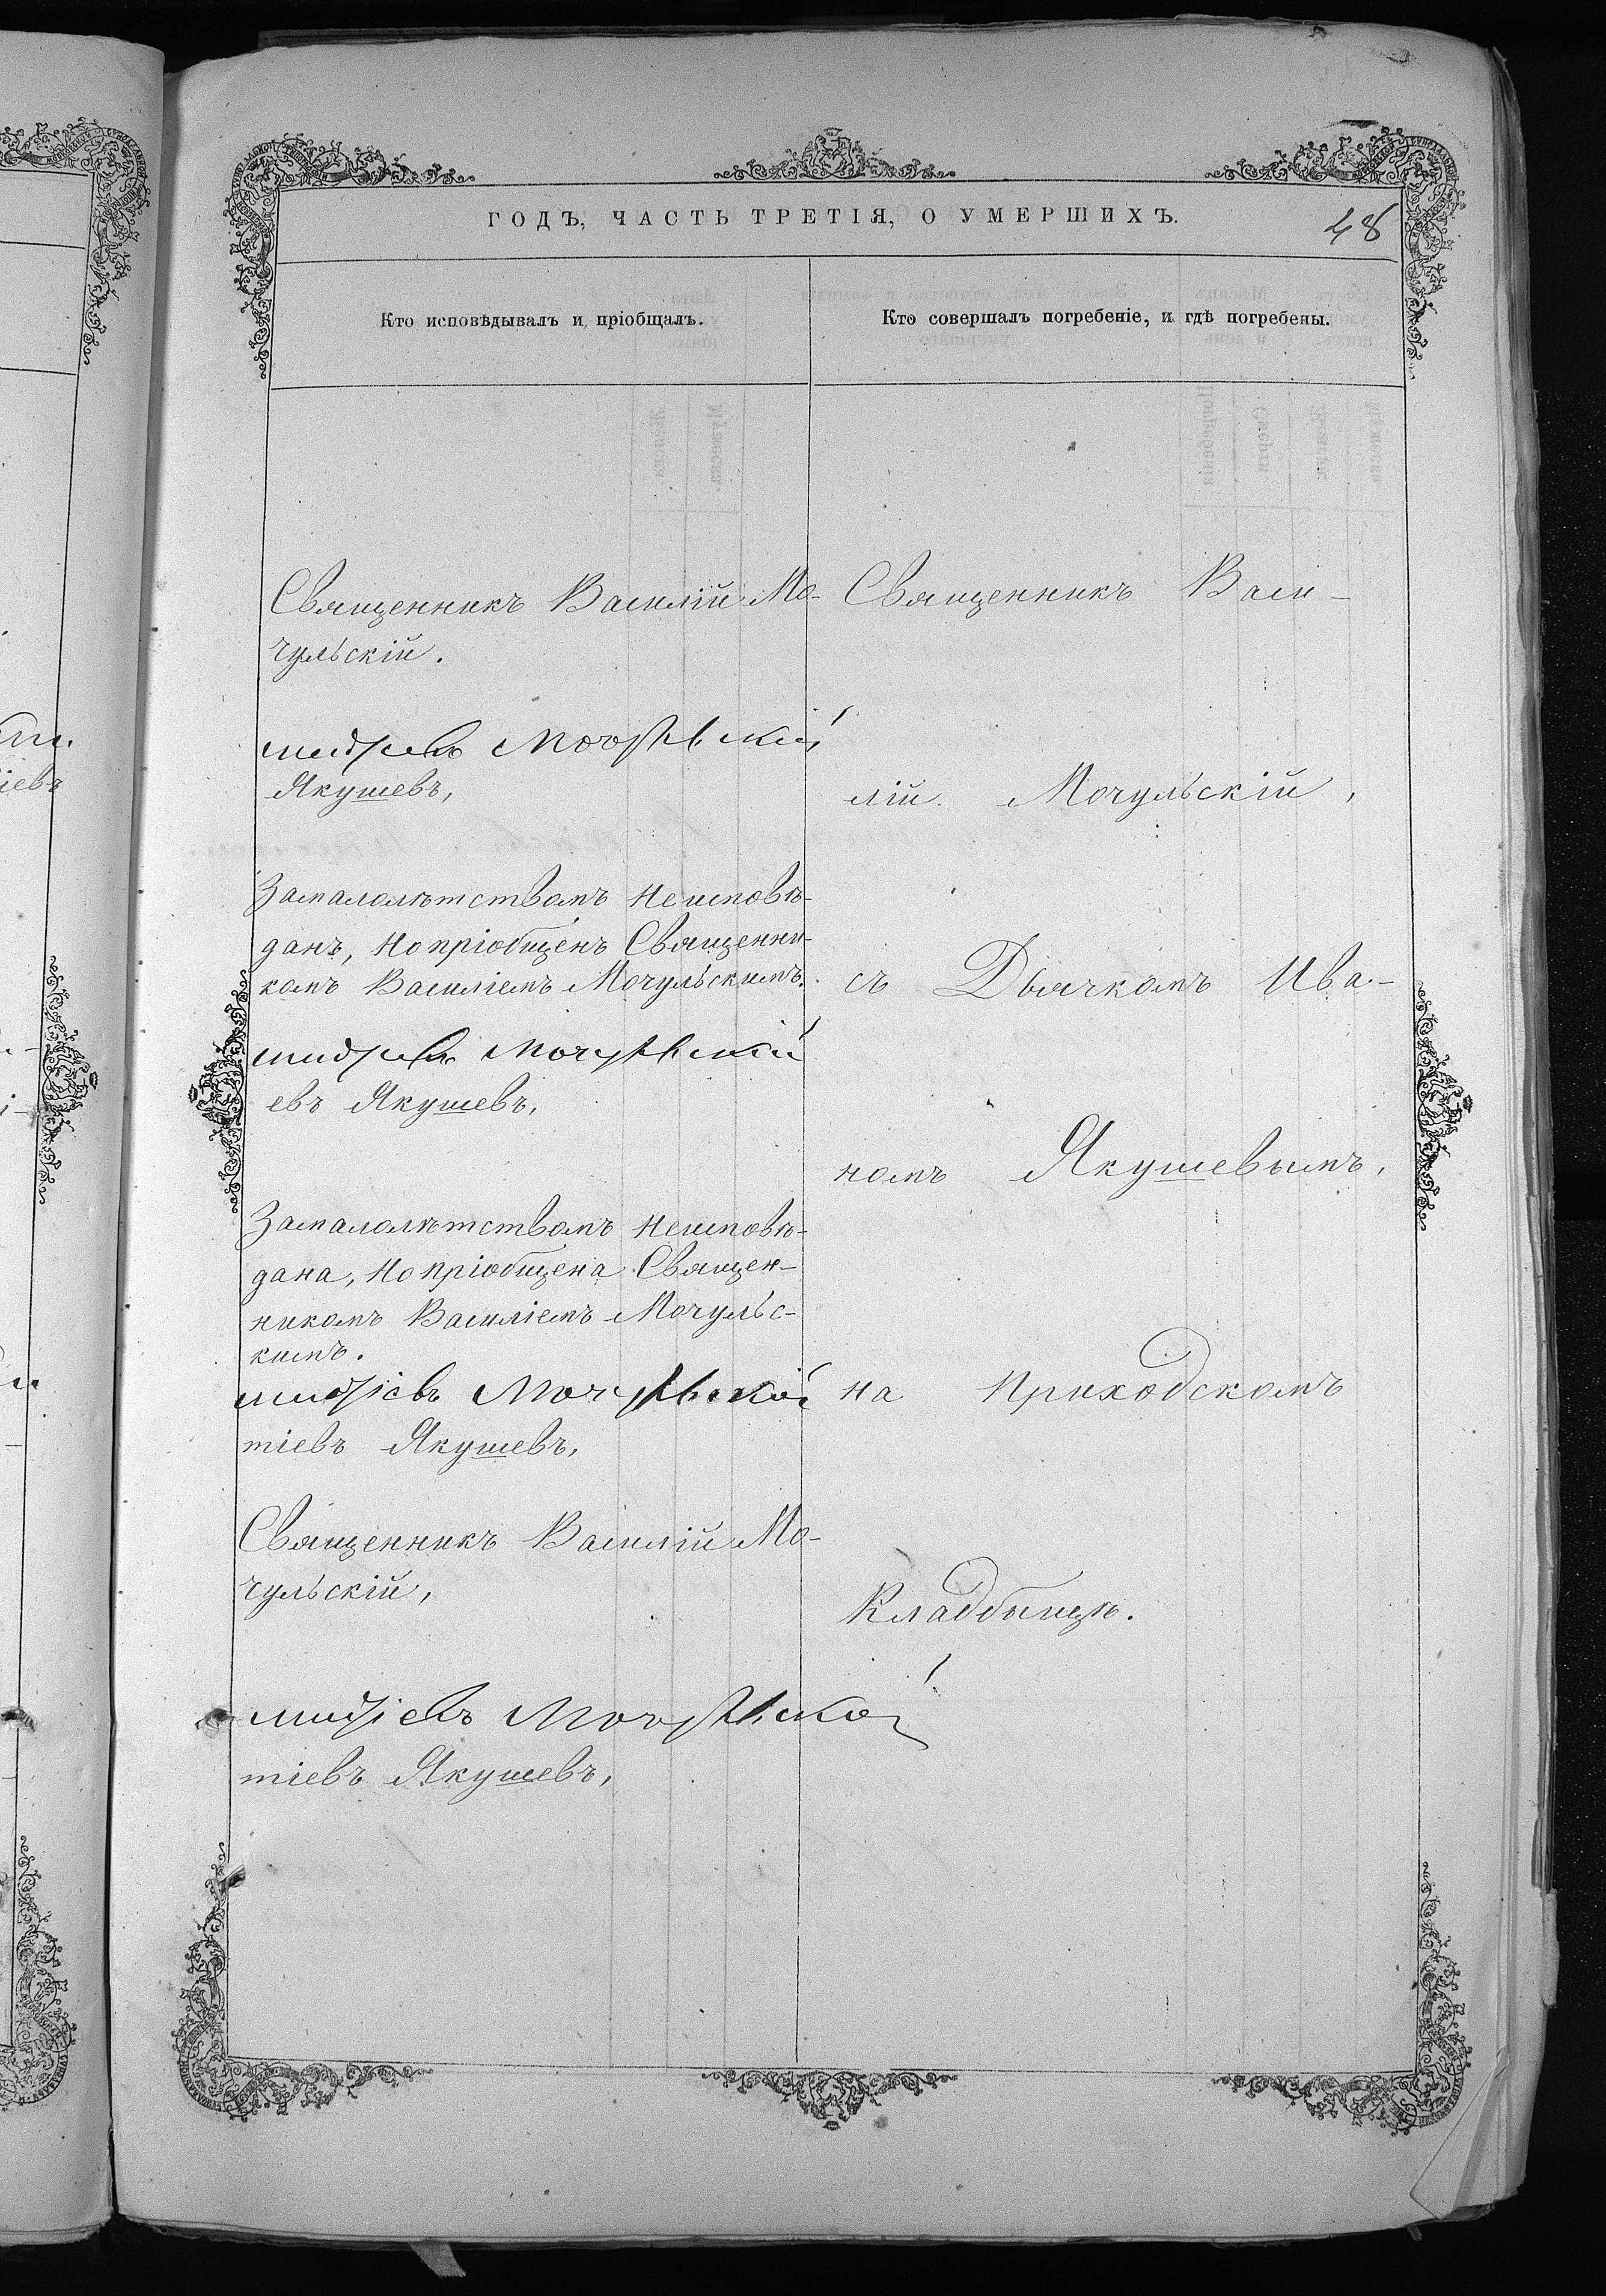 ГОДЪ, ЧАСТЬ ТРЕТІЯ, О УМЕРШИХЪ.
48
Кто исповѣдывалъ и пріобщалъ.
Священникъ Василій Мо-
чульскій.
Мочульскій
Якушевъ,
Замалолѣтствомъ неисповѣ-
данъ, но пріобщенъ Священни-
комъ Василіемъ Мочульскимъ.
Мочульскій
евъ Якушевъ,
Замалолѣтствомъ неисповѣ-
дана, но пріобщена Священ-
никомъ Василіемъ Мочульс-
кимъ.
Мочульскій
тіевъ Якушевъ,
Священникъ Василій Мо-
чульскій,
Мочульской
тіевъ Якушевъ,
Кто совершалъ погребеніе, и гдѣ погребены.
Священникъ Васи-
лій Мочульскій,
съ Дьячкомъ Ива-
номъ Якушевымъ,
на приходскомъ
Кладбищѣ.